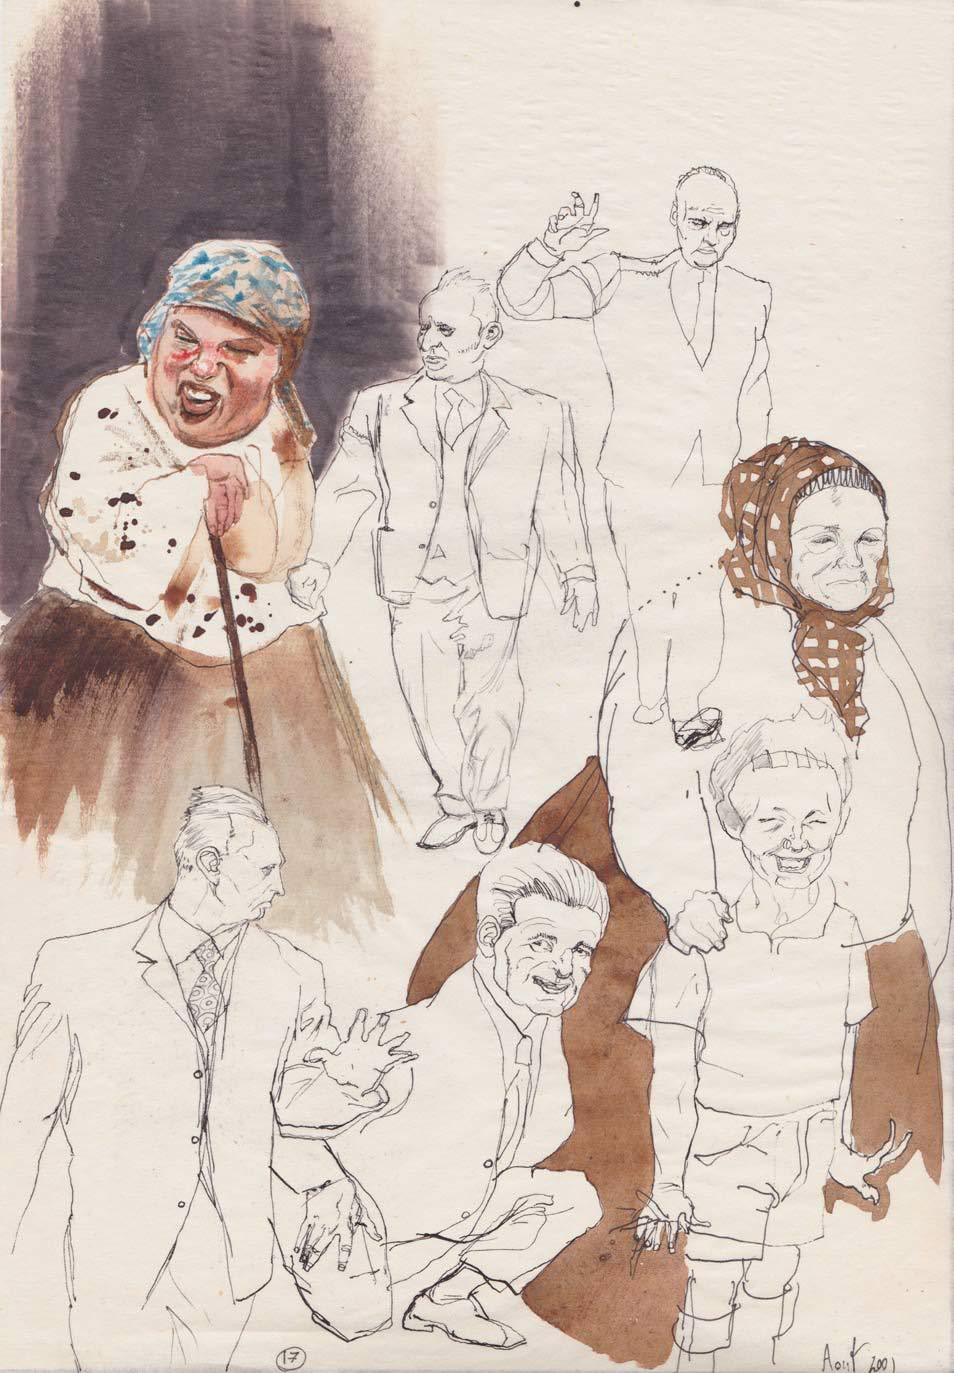 17
Aout 2001